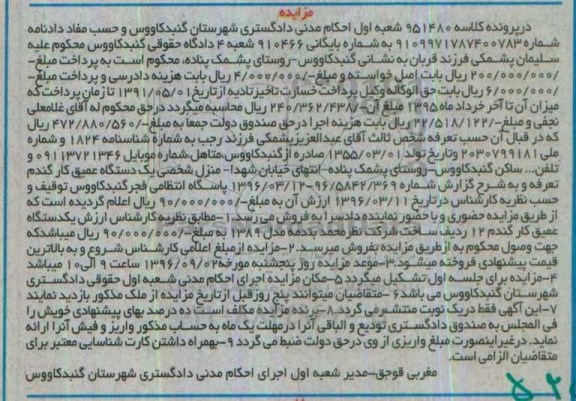 مزایده
درپرونده کلاسه ۹۵۱۴۸۰ شعبه اول احکام مدنی دادگستری شهرستان گنبدکاووس و حسب مفاد دادنامه
شماره ۹۱۰۹۹۷۱۷۸۷۴۰۰۷۸۳ به شماره بایگانی ۹۱۰۴۶۶ شعبه ۴ دادگاه حقوقی گنبدکاووس محکوم علیه
سلیمان پشمکی فرزند قربان به نشانی گنبدکاووس-روستای پشمک پناده، محکوم است به پرداخت مبلغ-
/۲۰۰/۰۰۰/۰۰۰ ریال بابت اصل خواسته و مبلغ-/۴/۰۰۰/۰۰۰ ریال بابت هزینه دادرسی و پرداخت مبلغ-
/۶/۰۰۰/۰۰۰ ریال بابت حق الوکاله وکیل پرداخت خسارت تاخیرتادیه از تاریخ ۱۳۹۱/۰۵/۰۱ تا زمان پرداخت که
میزان آن تا آخر خرداد ماه ۱۳۹۵ مبلغ آن-/۲۴۰/۳۶۲/۴۳۸ ریال محاسبه میگردد در حق محکوم له آقای غلامعلی
نجفی و مبلغ-/۲۲/۵۱۸/۱۲۲ ریال بابت هزینه اجرا درحق صندوق دولت جمعا به مبلغ-/۴۷۲/۸۸۰/۵۶۰ ریال
که در قبال آن حسب تعرفه شخص ثالث آقای عبدالعزیزپشمکی فرزند رجب به شماره شناسنامه ۱۸۲۴ و شماره
ملی ۲۰۳۰۷۹۹۱۸۱ وتاریخ تولد ۱۳۵۵/۰۳/۰۱ صادره ازگنبدکاووس،متاهل،شماره موبایل ۰۹۱۱۳۷۲۱۳۴۶ و
تلفن... ساکن گنبدکاووس-روستای پشمک پناده-انتهای خیابان شهدا- منزل شخصی یک دستگاه عمیق کار گندم
تعرفه و به شرح گزارش شماره ۹۶/۵۸۴۲/۳۶۹-۱۳۹۶/۰۳/۱۲ پاسگاه انتظامی فجرگنبدکاووس توقیف و
حسب نظریه کارشناس در تاریخ ۱۳۹۶/۰۳/۱۱ ارزش آن به مبلغ-/۹۰/۰۰۰/۰۰۰ ریال اعلام گردیده است که
از طریق مزایده حضوری و با حضور نماینده دادسرا به فروش می رسد.۱-مطابق نظریه کارشناس ارزش یکدستگاه
عمیق کار گندم ۱۲ ردیف ساخت شرکت نظرمحمد بندمه مدل ۱۳۸۹ به مبلغ-/۹۰/۰۰۰/۰۰۰ ریال میباشدکه
جهت وصول محکوم به ازطریق مزایده بفروش میرسد.۲-مزایده ازمبلغ اعلامی کارشناس شروع و به بالاترین
قیمت پیشنهادی فروخته میشود.۳-موعد مزایده روز پنجشنبه مورخه ۱۳۹۶/۰۹/۰۲ ساعت ۹ الی۱۰ میباشد
۴-مزایده برای جلسه اول تشکیل میگردد ۵-مکان مزایده اجرای احکام مدنی شعبه اول حقوقی دادگستری
شهرستان گنبدکاووس می باشد ۶ -متقاضیان میتوانند پنج روزقبل ازتاریخ مزایده از ملک مذکور بازدید نمایند
۷-این آگهی فقط دریک نوبت منتشرمی گردد.۸-برنده مزایده مکلف است ده درصد بهای پیشنهادی خویش را
فی المجلس به صندوق دادگستری تودیع و الباقی آنرا درمهلت یک ماه به حساب مذکور واریز و فیش آنرا ارائه
نماید. درغیراینصورت مبلغ واریزی از وی درحق دولت ضبط می گردد ۹-بهمراه داشتن کارت شناسایی معتبر برای
متقاضیان الزامی است.
مغربی قوجق-مدیر شعبه اول اجرای احکام مدنی دادگستری شهرستان گنبدکاووس